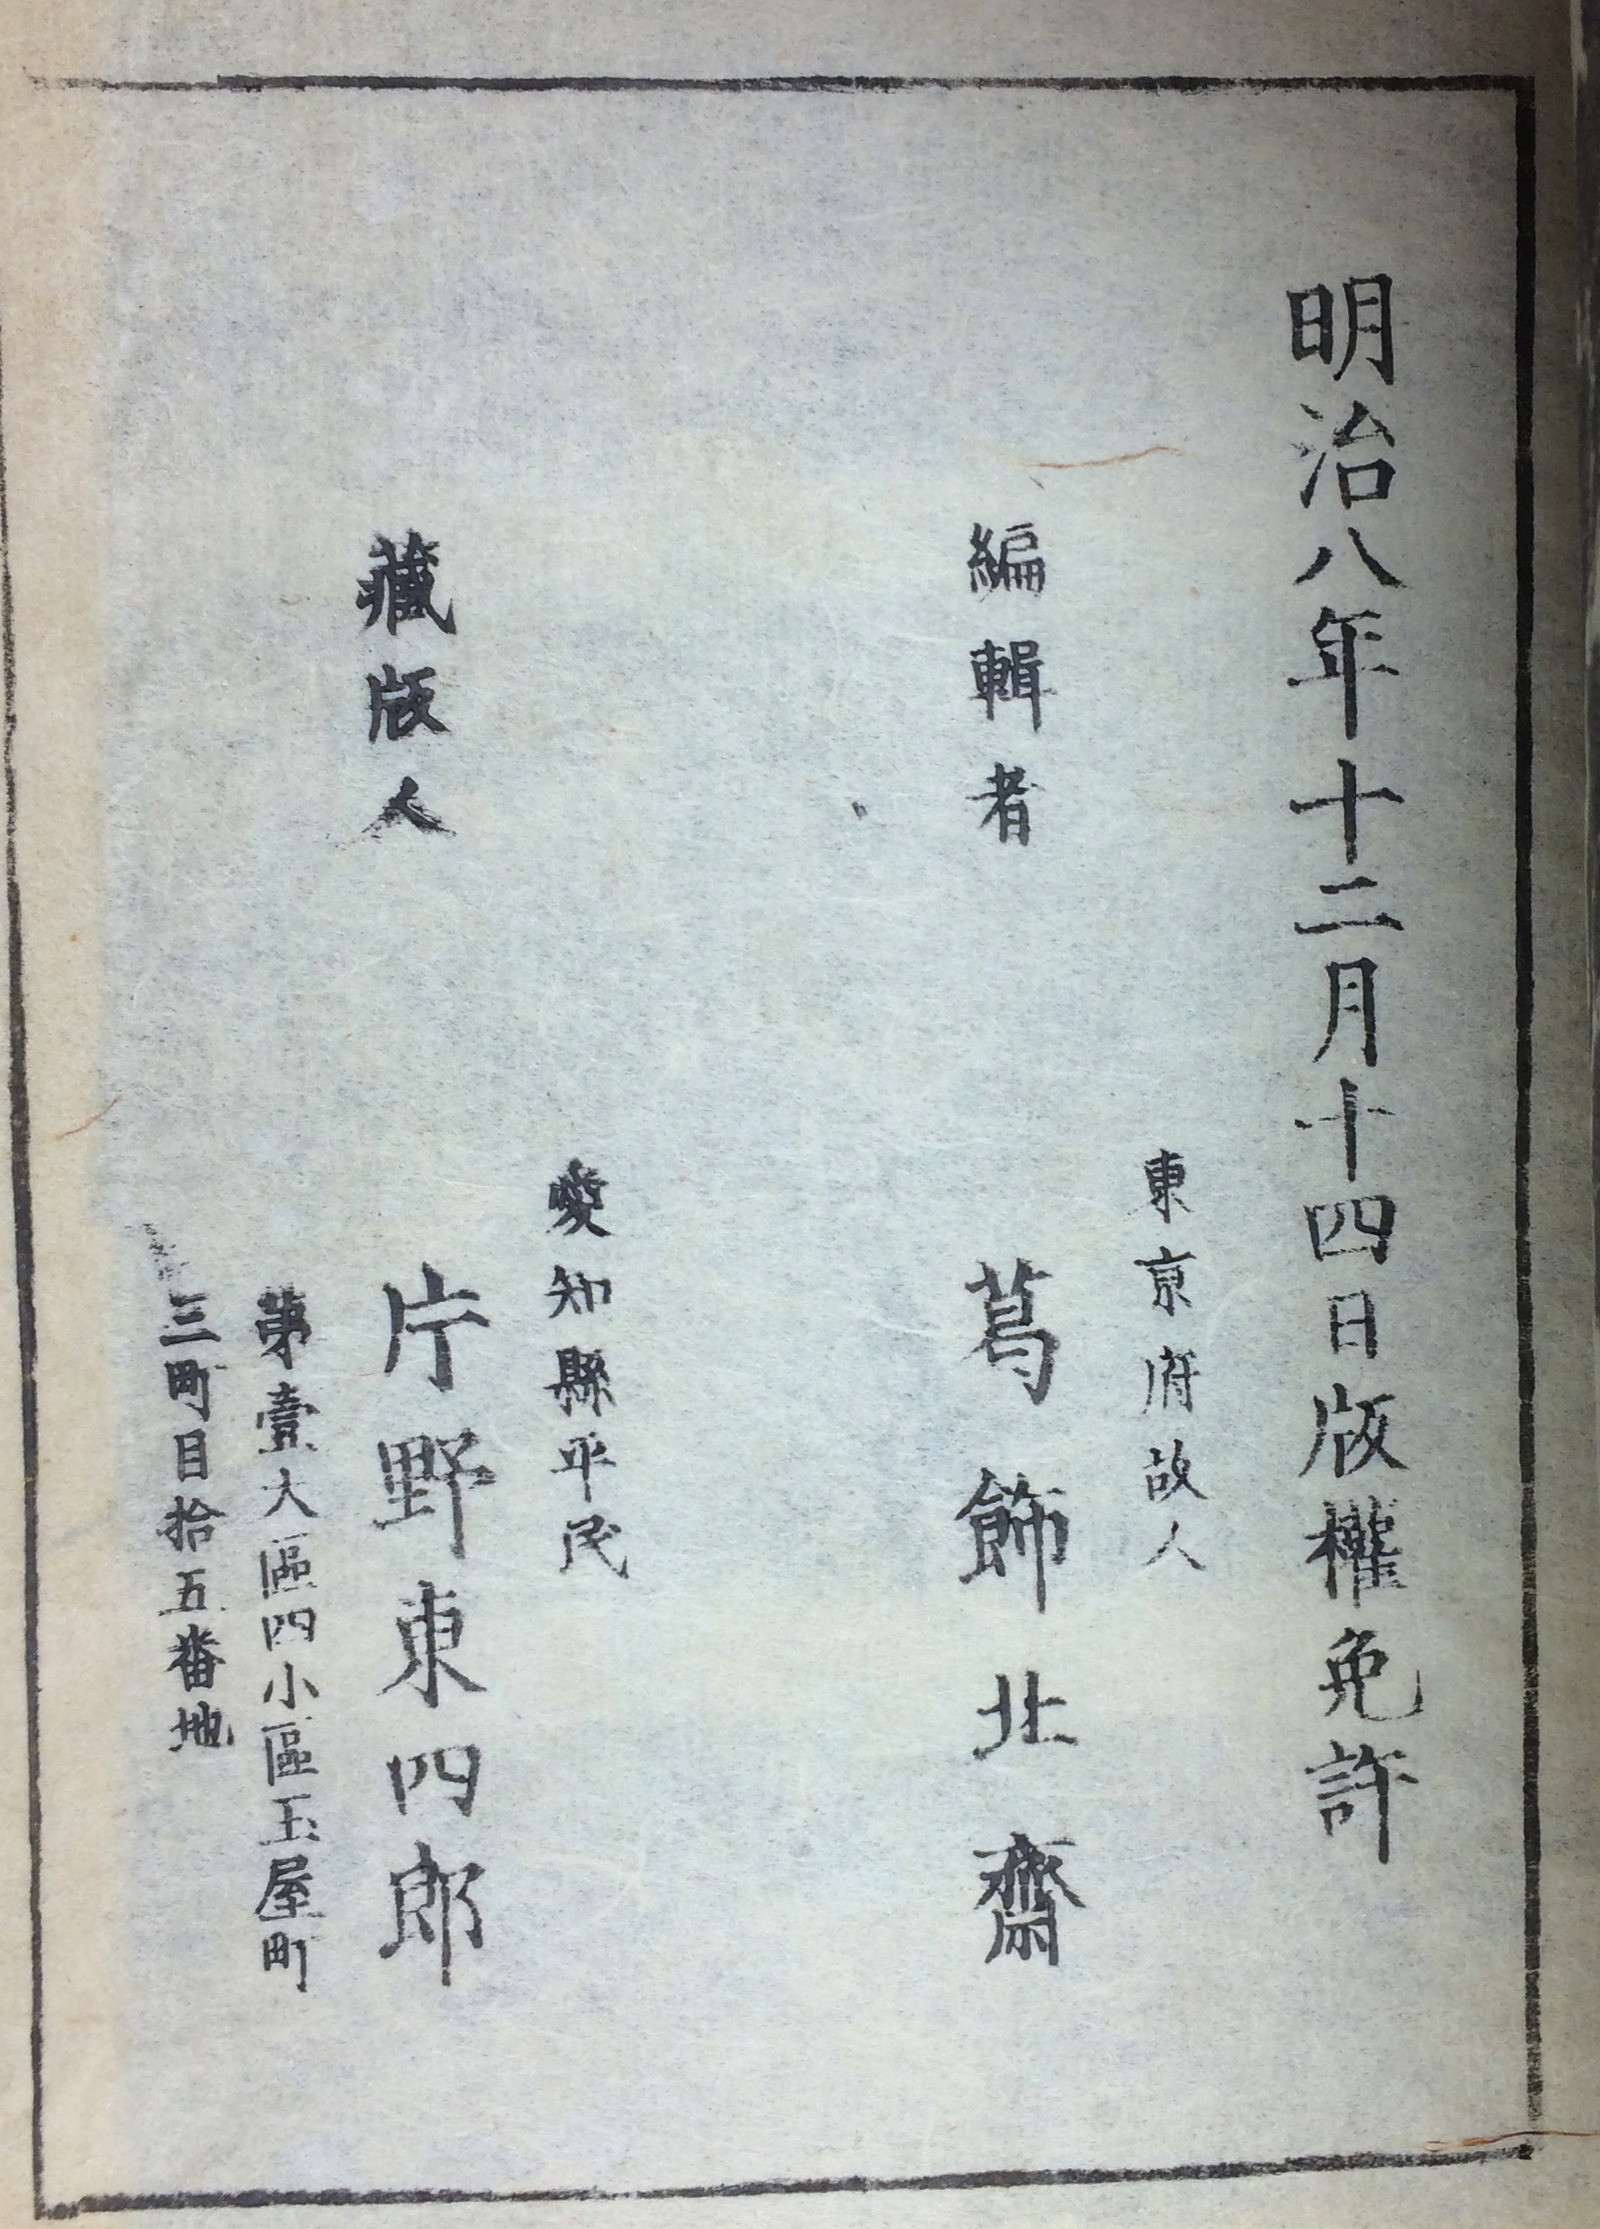 明治八年十二月十四日版權免許
東京府故人
編輯者
葛飾北齋
愛知縣平民
藏版人
片野東四郎
第壹大區四小區玉屋町
三町目拾五番地